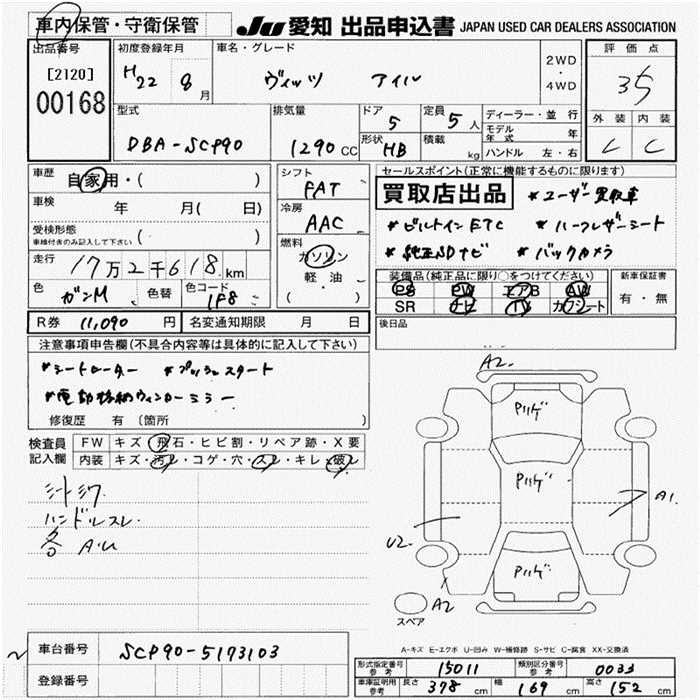 車内保管・守衛保管
JU 愛知 出品申込書 JAPAN USED CAR DEALERS ASSOCIATION
出品番号
[2120]
00168
初度登録年月
H22 8月
車名・グレード
ヴィッツ アイル
2WD
・
4WD
評価点
3.5
外装 内装
C C
型式
DBA-SCP90
排気量
1290CC
ドア
5
形状
HB
定員
5人
積載
kg
ディーラー・並行
モデル年式 年
ハンドル 左・右
車歴
自家用・( )
車検
年 月( 日)
受検形態
車検付きのみ記入して下さい ( )
走行
17万2千618km
色
ガンM
色替
色コード
1F8
シフト
FAT
冷房
AAC
燃料
ガソリン
軽・油
( )
セールスポイント(正常に機能するものに限ります)
買取店出品
*ユーザー買取車
*ビルトインETC *ハーフレザーシート
*純正SDナビ *バックカメラ
装備品(純正品に限り○をつけてください)
PS PW エアB AW
SR ナビ TV カワシート
新車保証書
有・無
後日品
R券 11,090円
名変通知期限 月 日
注意事項申告欄(不具合内容等は具体的に記入して下さい)
*シートヒーター *プッシュスタート
*電動格納ウィンカーミラー
修復歴 有 (箇所 )
検査員
記入欄
FW キズ・飛石・ヒビ割・リペア跡・X要
内装 キズ・汚レ・コゲ・穴・スレ・キレ・破レ
シートシワ
ハンドルスレ.
各 AU
A2
Pリゲ
Pリゲ
Pリゲ
A1
U2
A2
スペア
A-キズ E-エクボ U-凹み W-補修跡 S-サビ C-腐食 XX-交換済
車台番号
SCP90-5173103
登録番号
形式指定番号
参考
15011
類別区分番号
参考
0033
車庫証明用
参考
長さ 378cm 幅 169cm 高さ 152cm